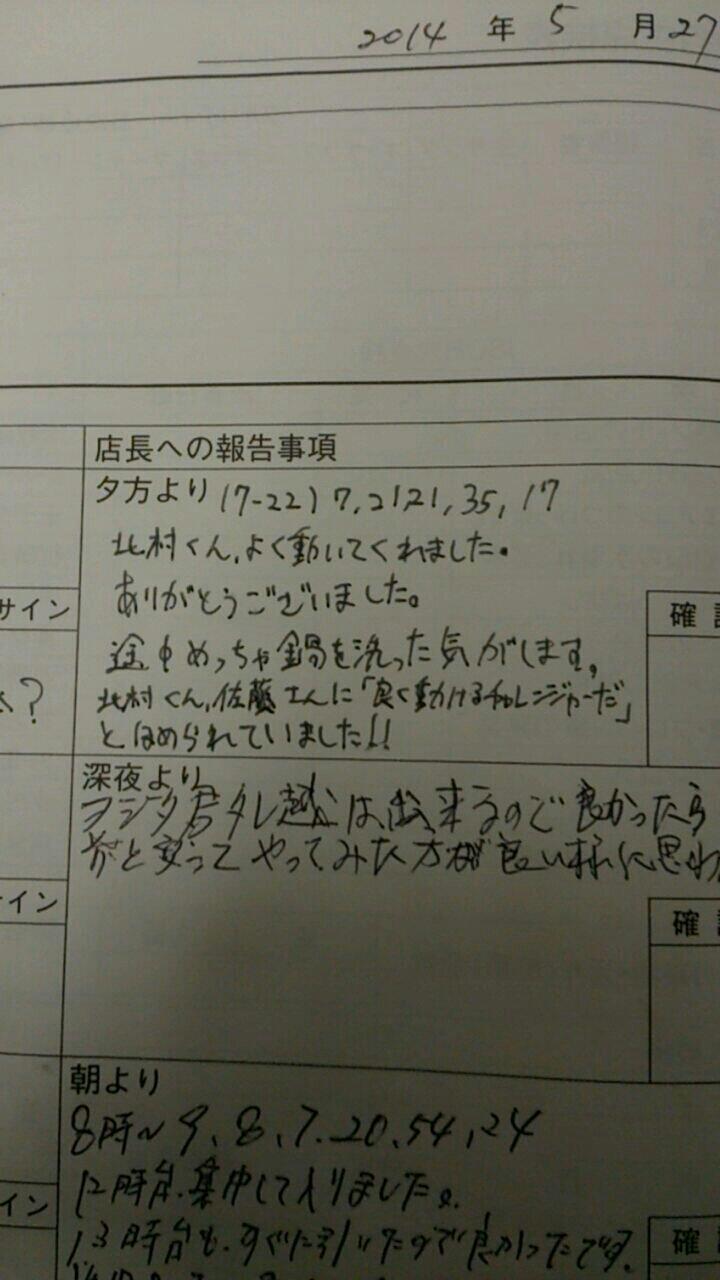 2014 年 5 月 27
店長への報告事項
夕方より (17-22) 7, 21, 21, 35, 17
北村くん、よく動いてくれました。
ありがとうございました。
サイン
確
途中めっちゃ鍋を洗った気がします。
北村くん、佐藤さんに「良く動けるチャレンジャーだ」
とほめられていました!!
？
深夜より
フジタ君タレ越は、出来るので良かったら
と交って やってみた方が良い様に思わ
イン
確
朝より
8時~ 9、8、7.20.54,24
12時台、集中して入りました。
イン
13時台も、すぐに引いたので良かったです。
確